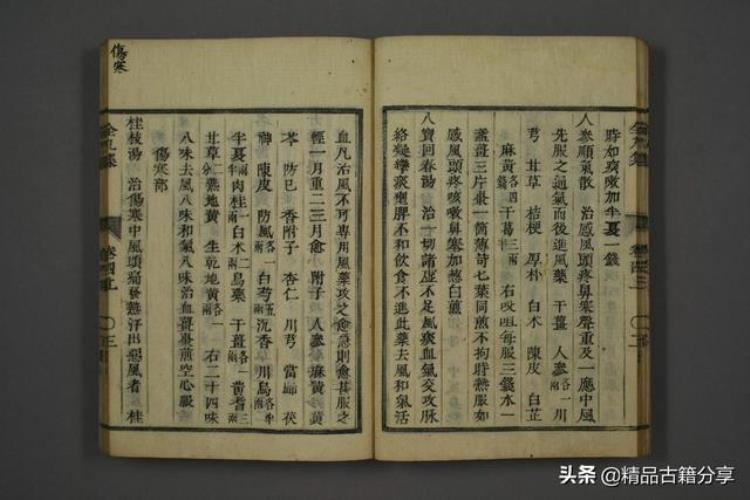 時如痰嗽加半夏一錢
人參順氣散 治感風頭疼鼻寒聲重及一應中風
先服之通氣而後進風藥 干薑 人參各一 川
芎 甘草 桔梗 厚朴 白术 陳皮 白芷
麻黃各四錢 干葛三兩 右㕮咀每服三錢水一
盞薑三片棗一箇薄荷七葉同煎不拘時熱服如
感風頭疼咳嗽鼻寒加葱白煎
八寶回春湯 治一切諸虛不足風痰血氣交攻脉
絡攣攣痰壅脾不和飲食不進此藥去風和氣活
血凡治風不可專用風藥攻之愈急則愈甚服之
輕一月重二三月愈 附子 人參 麻黃 黃
芩 防已 香附子 杏仁 川芎 當歸 茯
神 陳皮 防風各一兩 白芍五兩 沉香 川烏各半兩
半夏兩半 肉桂一兩 白术二兩 烏藥 干薑各一兩 黄耆三兩
甘草二 熟地黃 生乾地黃各一兩 右二十四味
八味去風八味和氣八味治血薑棗煎空心服
傷寒部
桂枝湯 治傷寒中風頭痛發熱汗出惡風者 桂
傷寒
卷四
頭条 @精品古籍分享